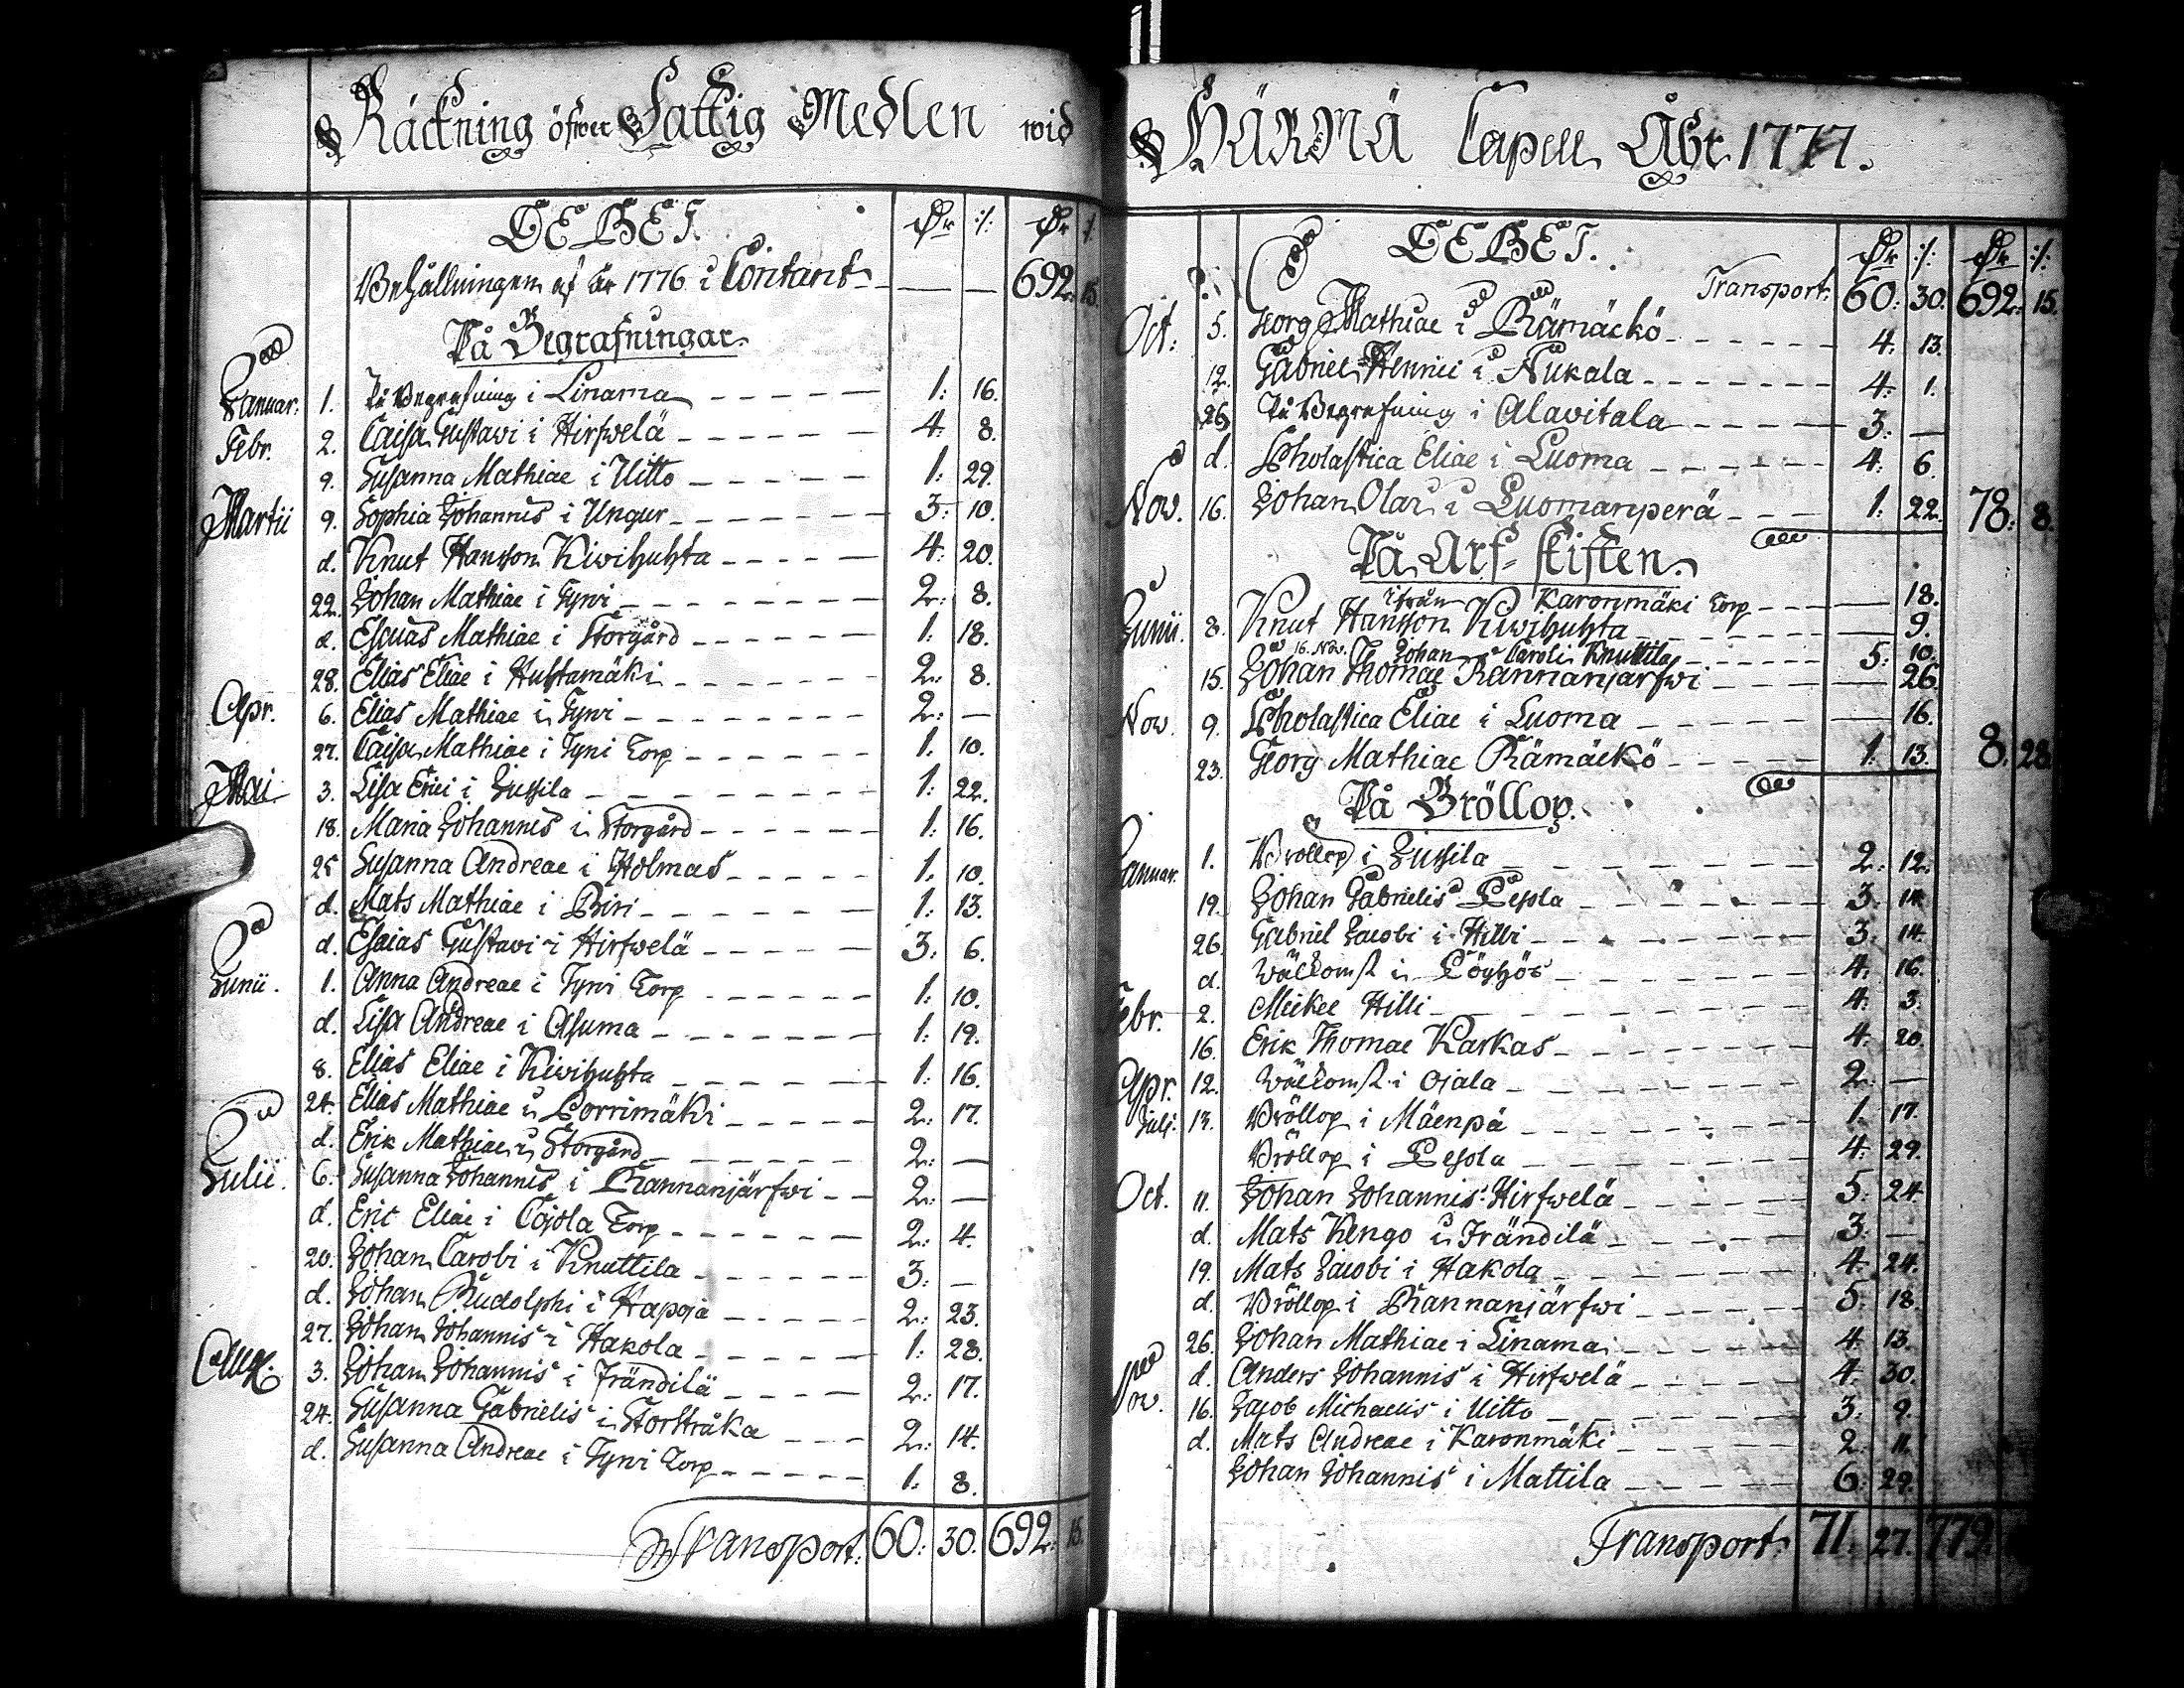 Räckning öfwer Fattig Medlen wid
DEBET. Dr :/: Dr :/:
Behållningen af år 1776 i Contant 692: 15.
På Begrafningar.
Januar. 1. På Begrafning i Linama 1: 16.
Febr. 2. Caisa Gustavi i Hirfwelä 4: 8.
9. Susanna Mathiae i Uitto 1: 29.
Martii 9. Sophia Johannis i Ungur 3: 10.
d. Knut Hansson Kiwihuhta 4: 20.
22. Johan Mathiae i Tyni 2: 8.
d. Esaias Mathiae i Storgård 1: 18.
28. Elias Eliae i Huhtamäki 2: 8.
Apr. 6. Elias Mathiae i Tyni 2: —
27. Caisa Mathiae i Tyni Torp 1: 10.
Mai 3. Lisa Erici i Jussila 1: 22.
18. Maria Johannis i Storgård 1: 16.
25 Susanna Andreae i Holmas 1: 10.
d. Mats Mathiae i Biri 1: 13.
d. Esaias Gustavi i Hirfwelä 3: 6.
Junii. 1. Anna Andreae i Tyni Torp 1: 10.
d. Lisa Andreae i Asuma 1: 19.
8. Elias Eliae i Kiwihuhta 1: 16.
24. Elias Mathiae i Porrimäki 2: 17.
d. Erik Mathiae i Storgård 2: —
Julii. 6. Susanna Johannis i Rannanjärfwi 2: —
d. Eric Eliae i Cojola Torp 2: 4.
20. Johan Caroli i Knuttila 3: —
d. Johan Rudolphi i Hapoja 2: 23.
27. Johan Johannis i Hakola 1: 28.
Aug. 3. Johan Johannis i Frändilä 2: 17.
24. Susanna Gabrielis i Storstråka 2: 14.
d. Susanna Andreae i Tyni Torp 1: 8.
Transport. 60: 30. 692: 15.
HÄRMÄ Capell Åhr 1777.
DEBET. Dr :/: Dr :/:
Transport. 60: 30. 692: 15.
Oct: 5. Georg Mathiae i Rämäckö 4: 13.
12. Gabriel Henrici i Nukala 4: 1.
26. På Begrafning i Alavitala 3: —
d. Scholastica Eliae i Luoma 4: 6.
Nov. 16. Johan Olai i Luomanperä 1: 22. 78: 8.
På Arf-skiften.
ifrån Karonmäki Torp — 18.
Junii. 8. Knut Hansson Kiwihuhta — 9.
16. Nov. Johan Caroli Knuttila 5: 10.
15. Johan Thomae Rannanjärfwi — 26.
Nov. 9. Scholastica Eliae i Luoma — 16.
23. Georg Mathiae Rämäckö 1: 13. 8: 28
På Bröllop.
Januar. 1. Bröllop i Jussila 2: 12.
19. Johan Gabrielis Pesola 3: 14
26. Gabriel Jacobi i Hilli 3: 14.
d. Wälkomst i Löyhös 4: 16.
Febr. 2. Meikel Hilli 4: 3.
16. Erik Thomae Karkas 4: 20.
Apr. 12. Wälkomst i Ojala 2: —
Julj. 13. Bröllop i Mäenpä 1: 17.
Bröllop i Pesola 4: 29.
Oct. 11. Johan Johannis Hirfwelä 5: 24
d. Mats Kengo i Frändilä 3: —
19. Mats Jacobi i Hakola 4: 24.
d. Bröllop i Rannanjärfwi 5: 18.
26. Johan Mathiae i Linama 4: 13.
d. Anders Johannis i Hirfwelä 4: 30.
Nov. 16. Jacob Michaelis i Uitto 3: 9.
d. Mats Andreae i Karonmäki 2: 11.
Johan Johannis i Mattila 6: 29.
Transport. 71: 27. 779: